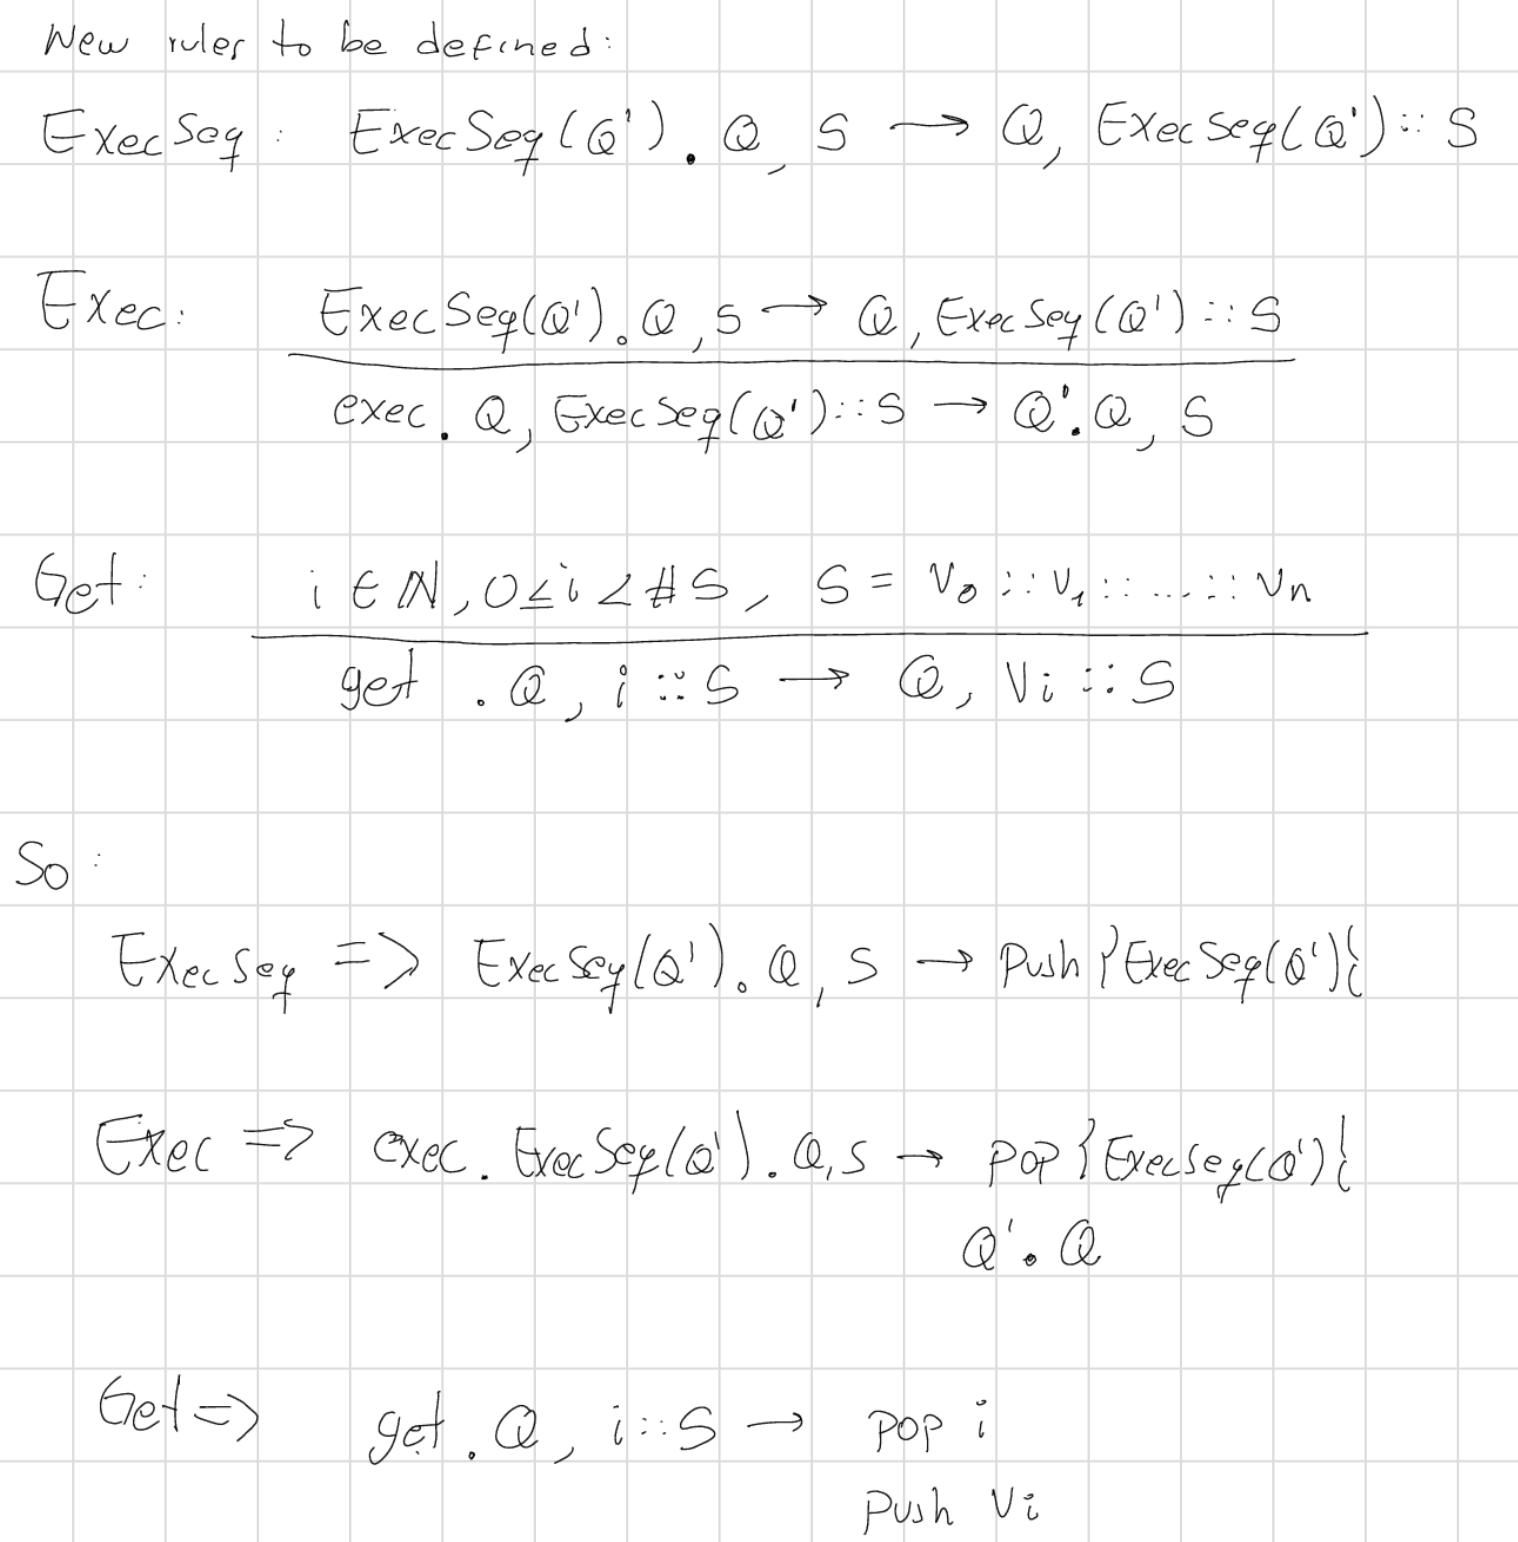 New rules to be defined:
ExecSeq : ExecSeq(Q') . Q, S → Q, ExecSeq(Q') :: S
Exec: ExecSeq(Q') . Q, S → Q, ExecSeq(Q') :: S
exec . Q, ExecSeq(Q') :: S → Q' . Q, S
Get: i ∈ ℕ, 0 ≤ i < #S, S = v₀ :: v₁ :: ... :: vₙ
get . Q, i :: S → Q, Vi :: S
So :
ExecSeq => ExecSeq(Q') . Q, S → Push {ExecSeq(Q')}
Exec => exec . ExecSeq(Q') . Q, S → pop {ExecSeq(Q')}
Q' . Q
Get => get . Q, i :: S → pop i
Push Vi